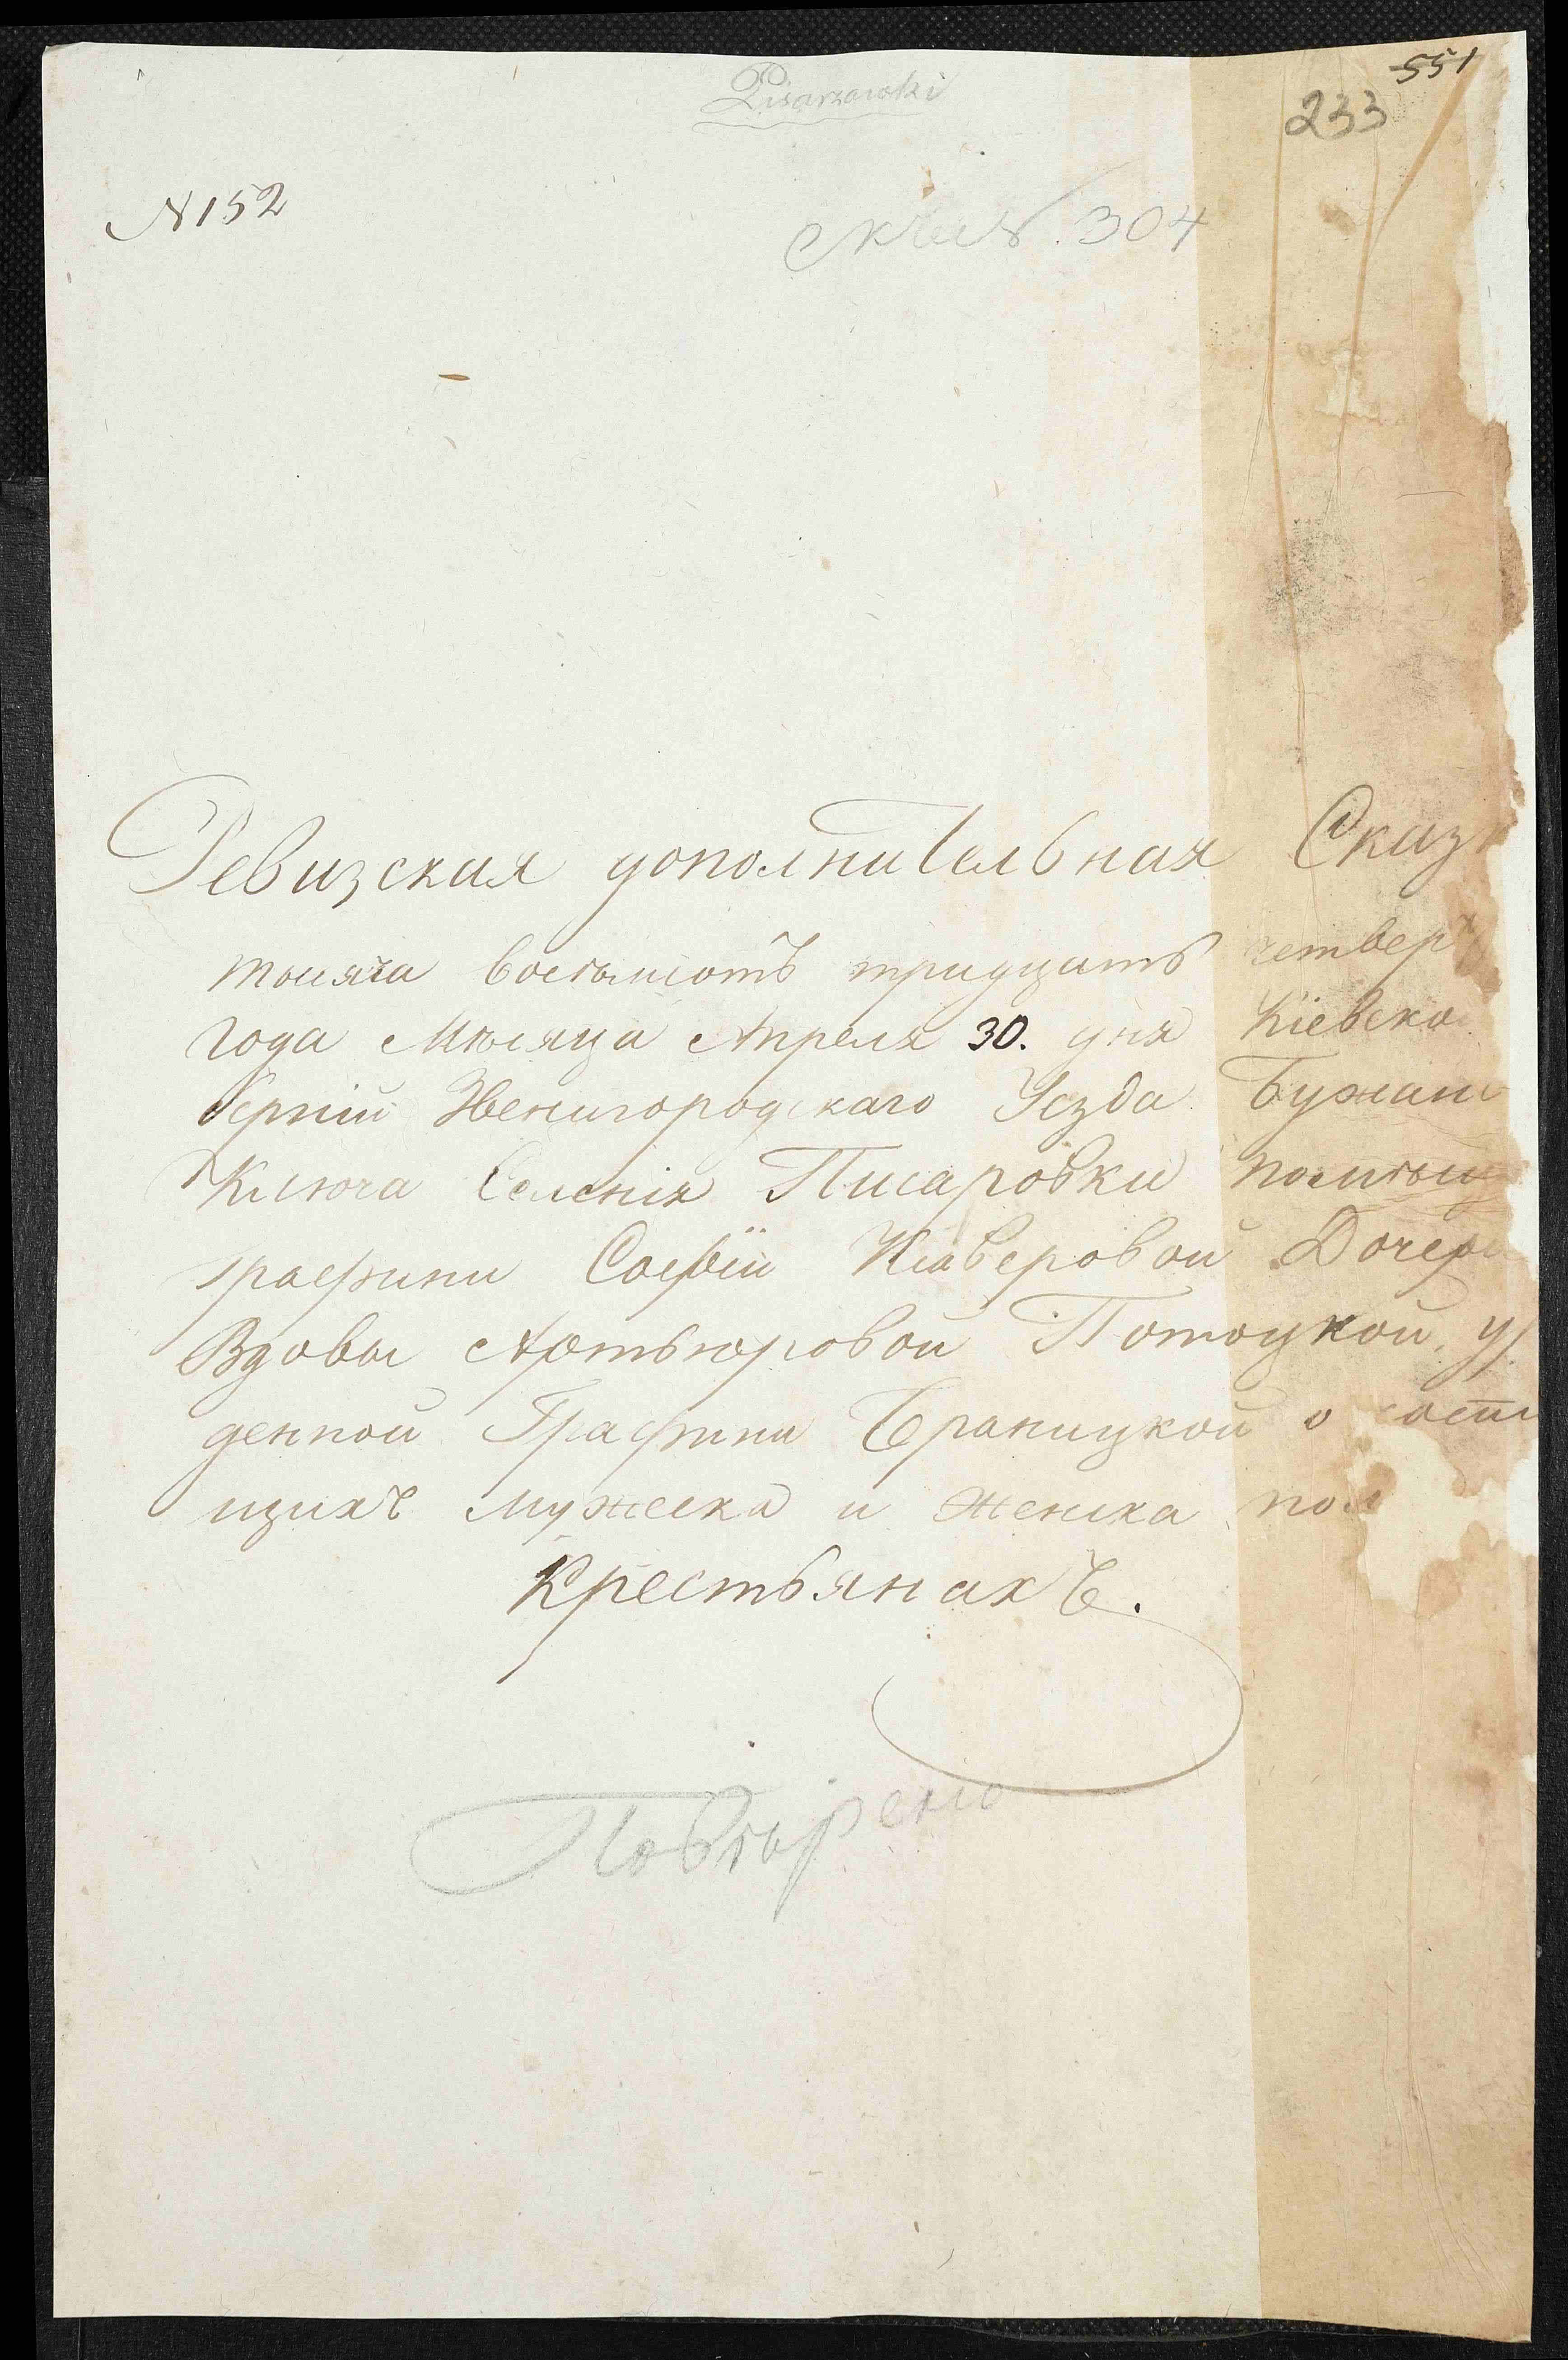 Pisarzowki
551
233
N 152
304
Ревизская дополнительная Сказк
тысяча восемьсотъ тридцать четверт
года Мѣсяца Апреля 30. дня Кіевско
Звенигородскаго Уезда Бужан
Ключа Селенія Писаровки
графини Софіи Ксаверовой Дочер
Вдовы Артьюровой Потоцкой, у
денной Графини Браницкой о состо
щихъ мужеска и женска пол
Крестьянахъ.